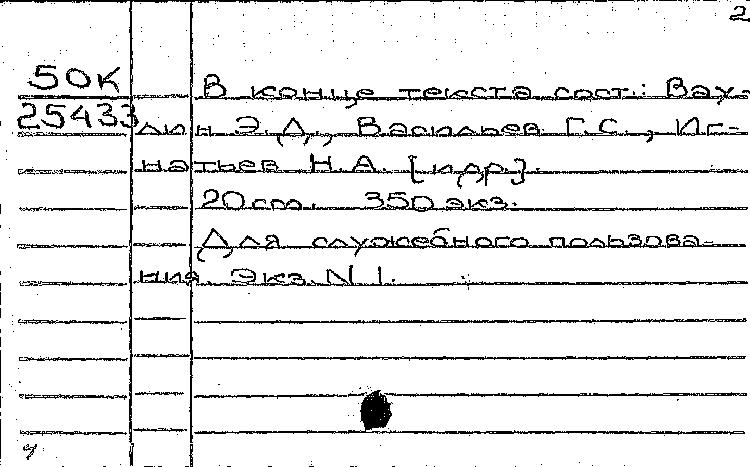 2
50К
25433
В конце текста сост.: Вау-
лин Э.Д., Васильев Г.С., Иг-
натьев Н.А. [и др].
20 см. 350 экз.
Для служебного пользова-
ния. Экз. N 1.